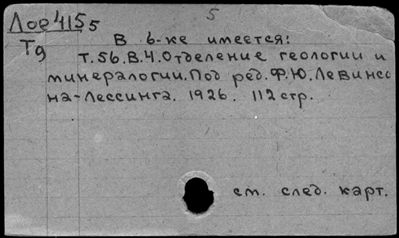 Лор4155
5
Тд
В б-ке имеется:
т.56.В.4.Отделение геологии и
минералогии.Под ред.Ф.Ю.Левинсо
на-Лессинга. 1926. 112 стр.
см. след. карт.